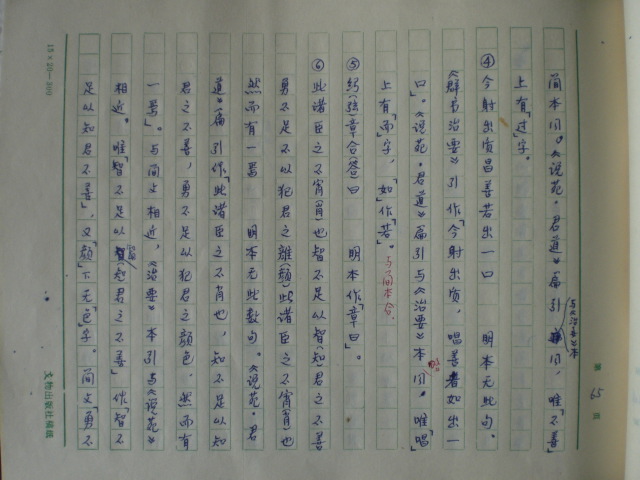 第 65 页
简本同。《说苑·君道》篇引同，唯“不善”
与《治要》本
上有“过”字。
④今射出质昌善若出一口　明本无此句。
《群书治要》引作“今射出质，唱善者如出一
口”。《说苑·君道》篇引与《治要》本同，唯“唱”
上有“而”字，“如”作“若”。与简本合。
⑤纾（弦）章合（答）曰　明本作“章曰”。
⑥此诸臣之不宵（肖）也智不足以智（知）君之不善
勇不足不以犯君之（颜）此诸臣之不宵（肖）也
然而有一焉　明本无此数句。《说苑·君
道》篇引作“此诸臣之不肖也，知不足以知
君之不善，勇不足以犯君之颜色。然而有
一焉”。与简文相近，《治要》本引与《说苑》
相近。唯“智不足以知君之不善”作“智不
足以知君不善”，又“颜”下无“色”字。简文“勇不
15×20=300
文物出版社稿纸